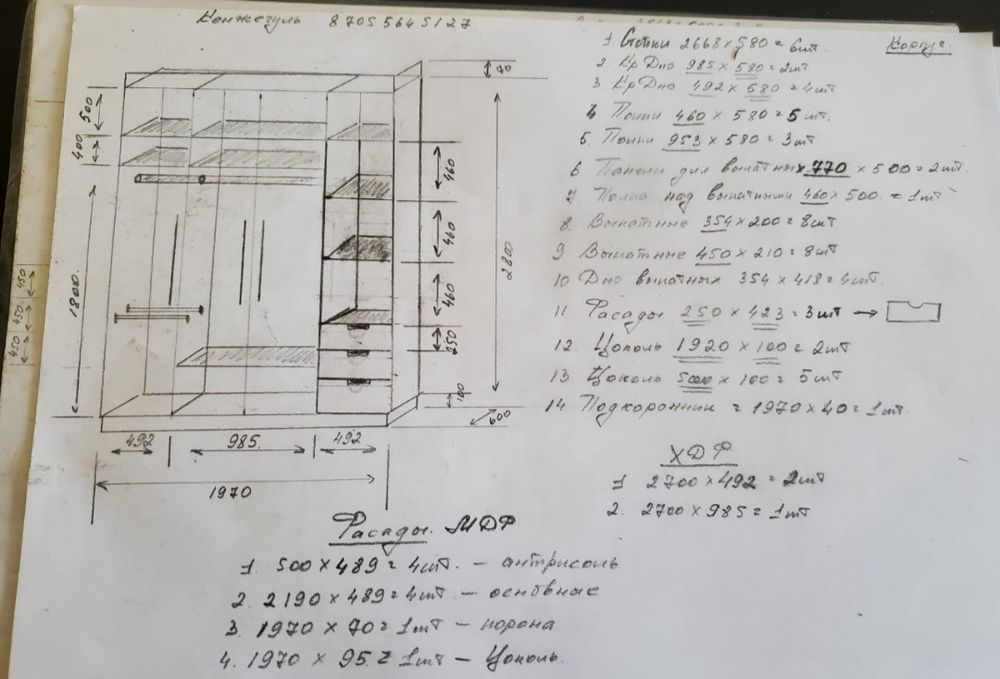 Кенжегуль 8705 564 5127
Корпус.
1 Стойки 2668 x 580 = 6шт.
2 Кр Дно 985 x 580 = 2шт
3 Кр Дно 492 x 580 = 4шт
4 Полки 460 x 580 = 5шт.
5. Полки 953 x 580 = 3шт
6 Панели для выкатных 770 x 500 = 2шт.
7. Полка над выкатными 460 x 500. = 1шт
8. Выкатные 354 x 200 = 8шт
9 Выкатные 450 x 210 = 8шт
10 Дно выкатных 354 x 418 = 4шт.
11 Фасады 250 x 423 = 3шт →
12. Цоколь 1920 x 100 = 2шт
13. Цоколь 500 x 100 = 5шт
14 Подкоронник = 1970 x 40 = 1шт.
ХДФ
1 2700 x 492 = 2шт
2. 2700 x 985 = 1шт
70
500
400
1800
460
460
460
250
100
2800
600
492
985.
492
1970
450
450
450
Фасады. МДФ
1. 500 x 489 = 4шт. — антрисоль
2. 2190 x 489 = 4шт. — основные
3 1970 x 70 = 1шт — корона
4. 1970 x 95. = 1шт — Цоколь.